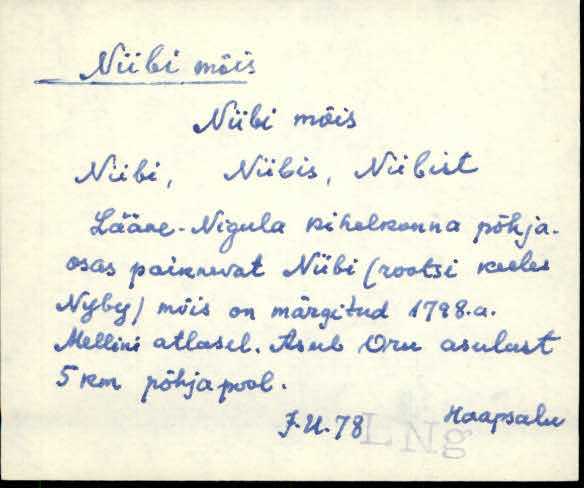 Niibi mõis
Niibi mõis
Niibi, Niibis, Niibist
Lääne-Nigula kihelkonna põhja-
osas paiknevat Niibi (rootsi keeles
Nyby) mõis on märgitud 1798.a.
Mellini atlasel. Asub Oru asulast
5 km põhjapool.
J.U.78 Haapsalu
LNg